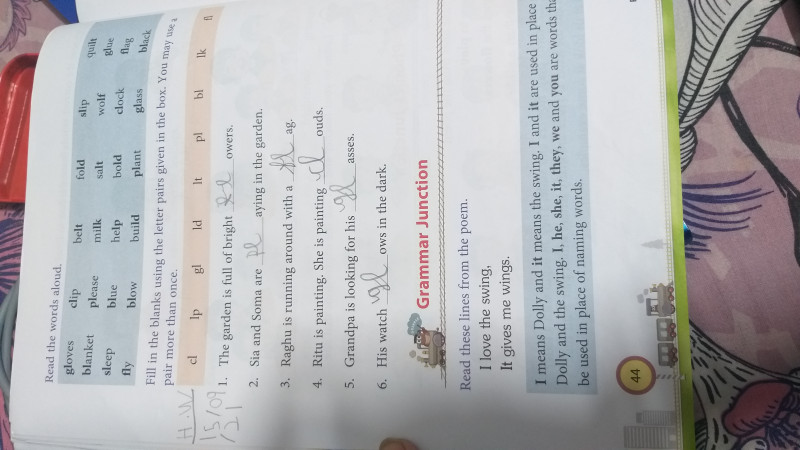 Read the words aloud.
gloves clip belt fold slip quilt
blanket please milk salt wolf glue
sleep blue help bold clock flag
fly blow build plant glass black
Fill in the blanks using the letter pairs given in the box. You may use a
pair more than once.
H.W
15/09
/21
cl lp gl ld lt pl bl lk fl
1. The garden is full of bright fl owers.
2. Sia and Soma are pl aying in the garden.
3. Raghu is running around with a fl ag.
4. Ritu is painting. She is painting cl ouds.
5. Grandpa is looking for his gl asses.
6. His watch gl ows in the dark.
Grammar Junction
Read these lines from the poem.
I love the swing,
It gives me wings.
I means Dolly and it means the swing. I and it are used in place
Dolly and the swing. I, he, she, it, they, we and you are words
be used in place of naming words.
44